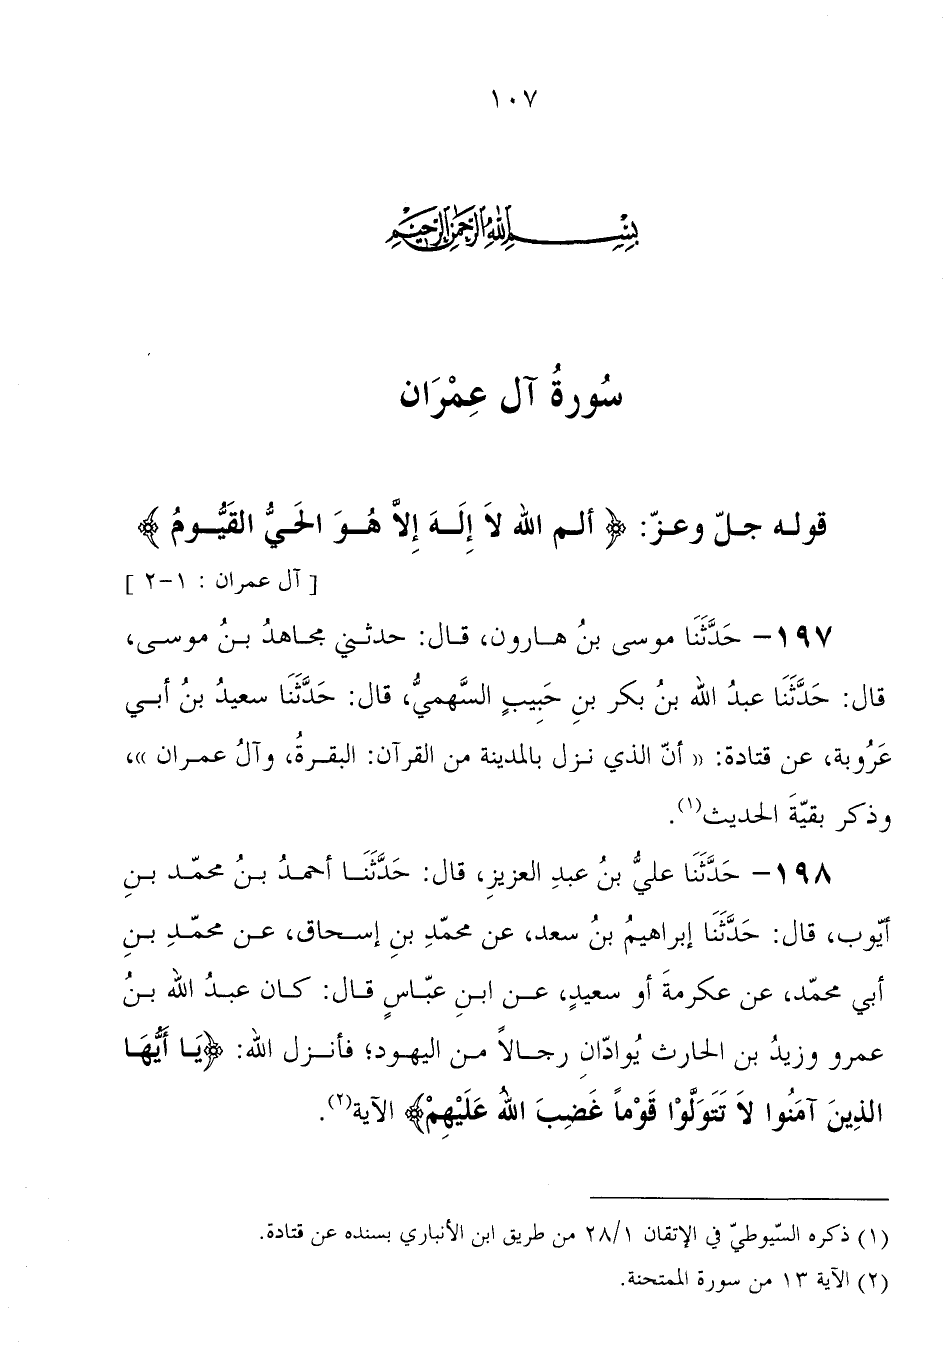 ١٠٧
بِسْمِ اللهِ الرَّحْمَنِ الرَّحِيمِ
سُورةُ آل عِمْرَان
قولـه جـلّ وعـزّ: ﴿ ألـم الله لاَ إِلَـهَ إِلاَّ هُـوَ الحَـيُّ القَيُّـومُ ﴾
[ آل عمران : ١-٢ ]
١٩٧- حَدَّثَنَا موسى بنُ هـارون، قـال: حدثـني مجاهدُ بـنُ موسـى،
قال: حَدَّثَنَا عبدُ الله بنُ بكر بنِ حَبِيبٍ السَّهميُّ، قال: حَدَّثَنَا سعيدُ بنُ أبـي
عَرُوبة، عن قتادة: « أنّ الذي نـزل بالمدينة من القرآن: البقـرةُ، وآلُ عمـران »،
وذكر بقيّةَ الحديث(١).
١٩٨- حَدَّثَنَا عليُّ بنُ عبدِ العزيزِ، قال: حَدَّثَنَـا أحمـدُ بـنُ محمّـد بـنِ
أيّوب، قال: حَدَّثَنَا إبراهيمُ بنُ سعد، عن محمّدِ بنِ إسـحاق، عـن محمّـدِ بـنِ
أبي محمّد، عن عكرمةَ أو سعيدٍ، عـن ابنِ عبّاسٍ قـال: كـان عبـدُ الله بـنُ
عمرو وزيدُ بن الحارث يُوادّانِ رجـالاً مـن اليهـود؛ فأنـزل الله: ﴿يَـا أَيُّهَـا
الذِينَ آمَنُوا لاَ تَتَوَلَّوْا قَوْماً غَضِبَ اللهُ عَلَيْهِمْ﴾ الآية(٢).
(١) ذكره السّيوطيّ في الإتقان ٢٨/١ من طريق ابن الأنباري بسنده عن قتادة.
(٢) الآية ١٣ من سورة الممتحنة.